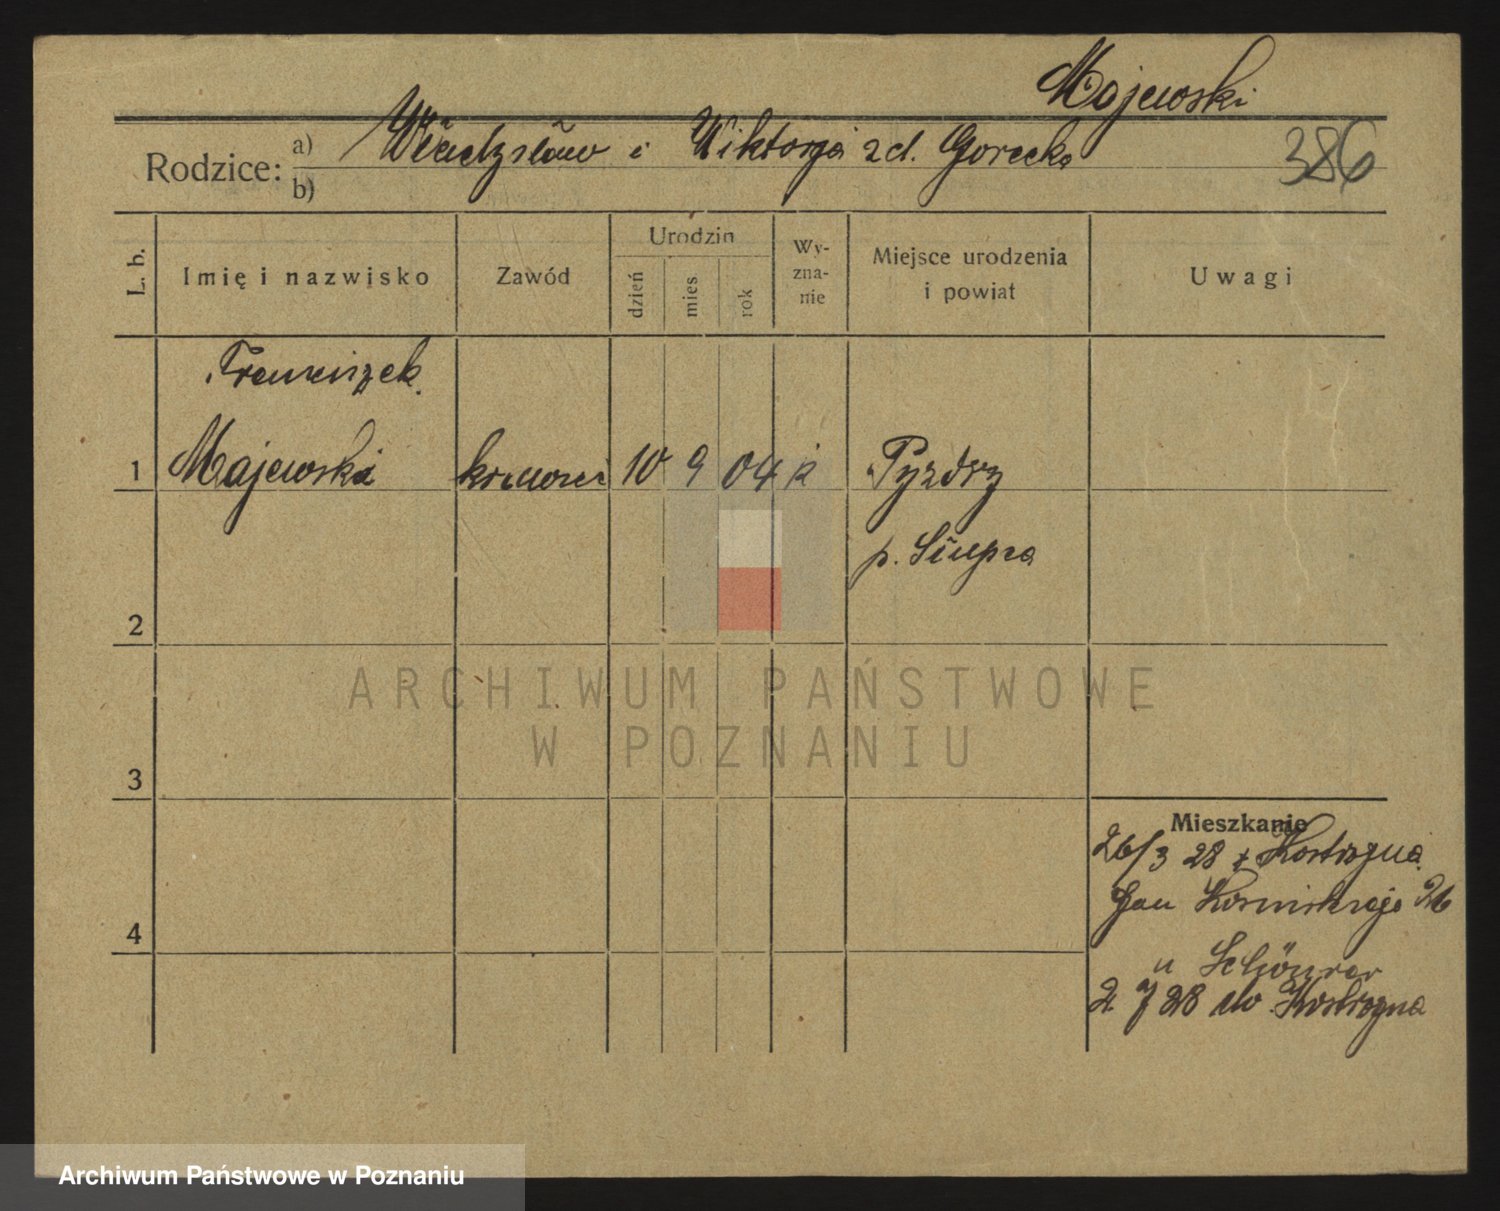 Majewski
Rodzice: a) Władysław i Wiktorja zd. Gorecka
386
b)
L. b.
Imię i nazwisko
Zawód
Urodzin
dzień
mies
rok
Wy-
zna-
nie
Miejsce urodzenia
i powiat
Uwagi
Franciszek
1 Majewski krawiec 10 9 04 k Pyzdry
p. Słupca
2
ARCHIWUM PAŃSTWOWE
W POZNANIU
3
Mieszkanie
26/3 28 z Kostrzyna
26
4
u
2 7 28 do Kostrzyna
Archiwum Państwowe w Poznaniu